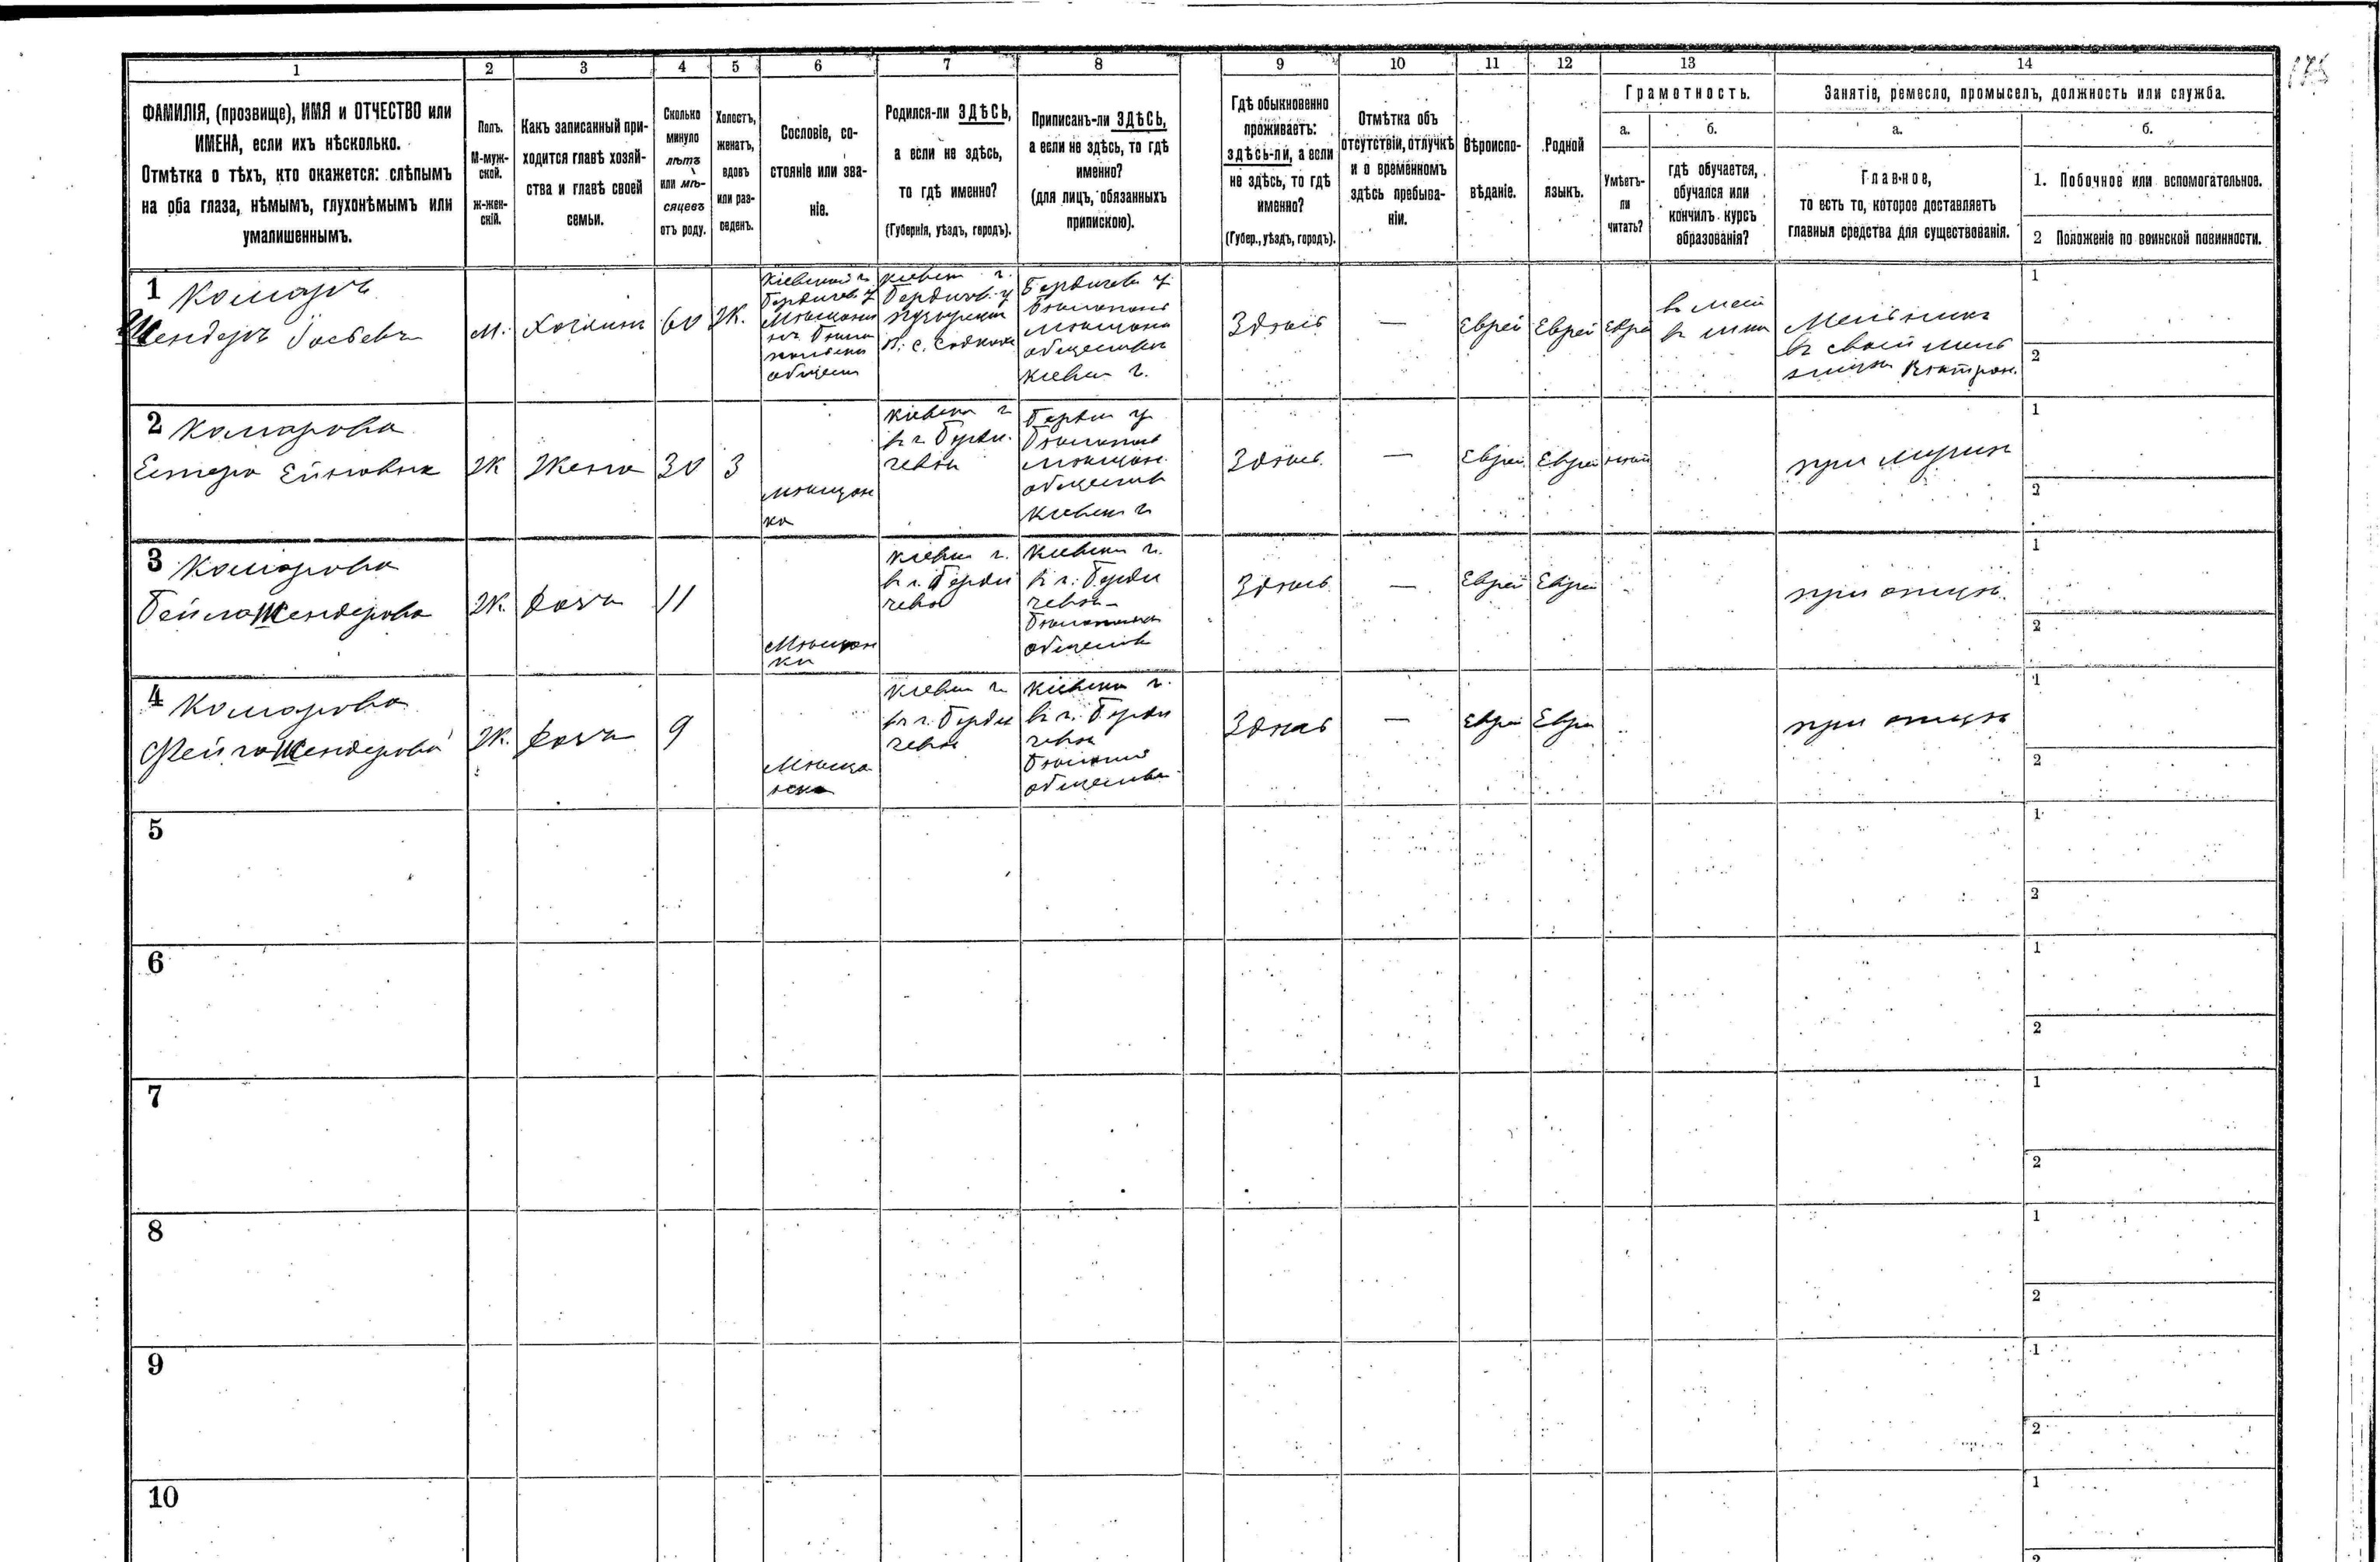 175
1 2 3 4 5 6 7 8 9 10 11 12 13 14
ФАМИЛІЯ, (прозвище), ИМЯ и ОТЧЕСТВО или
ИМЕНА, если ихъ нѣсколько.
Отмѣтка о тѣхъ, кто окажется: слѣпымъ
на оба глаза, нѣмымъ, глухонѣмымъ или
умалишеннымъ.
Полъ.
М-муж-
ской.
Ж-жен-
скій.
Какъ записанный при-
ходится главѣ хозяй-
ства и главѣ своей
семьи.
Сколько
минуло
лѣтъ
или мѣ-
сяцевъ
отъ роду.
Холостъ,
женатъ,
вдовъ
или раз-
веденъ.
Сословіе, со-
стояніе или зва-
ніе.
Родился-ли ЗДѢСЬ,
а если не здѣсь,
то гдѣ именно?
(Губернія, уѣздъ, городъ).
Приписанъ-ли ЗДѢСЬ,
а если не здѣсь, то гдѣ
именно?
(для лицъ, обязанныхъ
припискою).
Гдѣ обыкновенно
проживаетъ:
здѣсь-ли, а если
не здѣсь, то гдѣ
именно?
(Губер., уѣздъ, городъ).
Отмѣтка объ
отсутствіи, отлучкѣ
и о временномъ
здѣсь пребыва-
ніи.
Вѣроиспо-
вѣданіе.
Родной
языкъ.
Грамотность.
а.
Умѣетъ-
ли
читать?
б.
гдѣ обучается,
обучался или
кончилъ курсъ
образованія?
Занятіе, ремесло, промыселъ, должность или служба.
а.
Главное,
то есть то, которое доставляетъ
главныя средства для существованія.
б.
1. Побочное или вспомогательное.
2 Положеніе по воинской повинности.
1 Комаръ
Шендеръ Іосьевъ
М.
Хозяинъ
60
Ж.
Кіевской г.
Бердичев. у
Кіевск г.
Бердичев. у
Бердичев у
общества
Кіевск г.
Здѣсь
—
Еврей
Еврей
Мельникъ
1
2
2 Комарова
Естера
Ж
Жена
30
З
Мѣщан
ка
Кіевск г
въ г. Берди-
чевѣ
Берд у
Мѣщан.
обществ
Кіевск г
Здѣсь
—
Еврей
Еврей
при мужѣ
1
2
3 Комарова
Бейла Шендерова
Ж.
Дочь
11
Мѣщан
ка
Кіевск г.
въ г. Берди
чевѣ
Кіевск г.
въ г. Берди
чевѣ
обществ
Здѣсь
—
Еврей
Еврей
при отцѣ.
1
2
4 Комарова
Фейга Шендерова
Ж.
Дочь
9
Мѣща
нка
Кіевск г
въ г. Берди
чевѣ
Кіевск г.
въ г. Берди
чевѣ
общества
Здѣсь
—
Еврей
Евре
при отцѣ
1
2
5
1
2
6
1
2
7
1
2
8
1
2
9
1
2
10
1
2